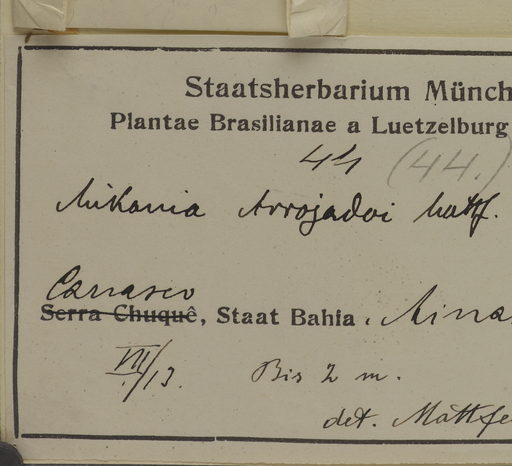 Staatsherbarium Münch
Plantae Brasilianae a Luetzelburg
44 (44.)
Mikania Arrojadoi Mattf.
Carrasco
Serra Chuquê, Staat Bahia.
VII/13. Bis 2 m.
det. Mattfe